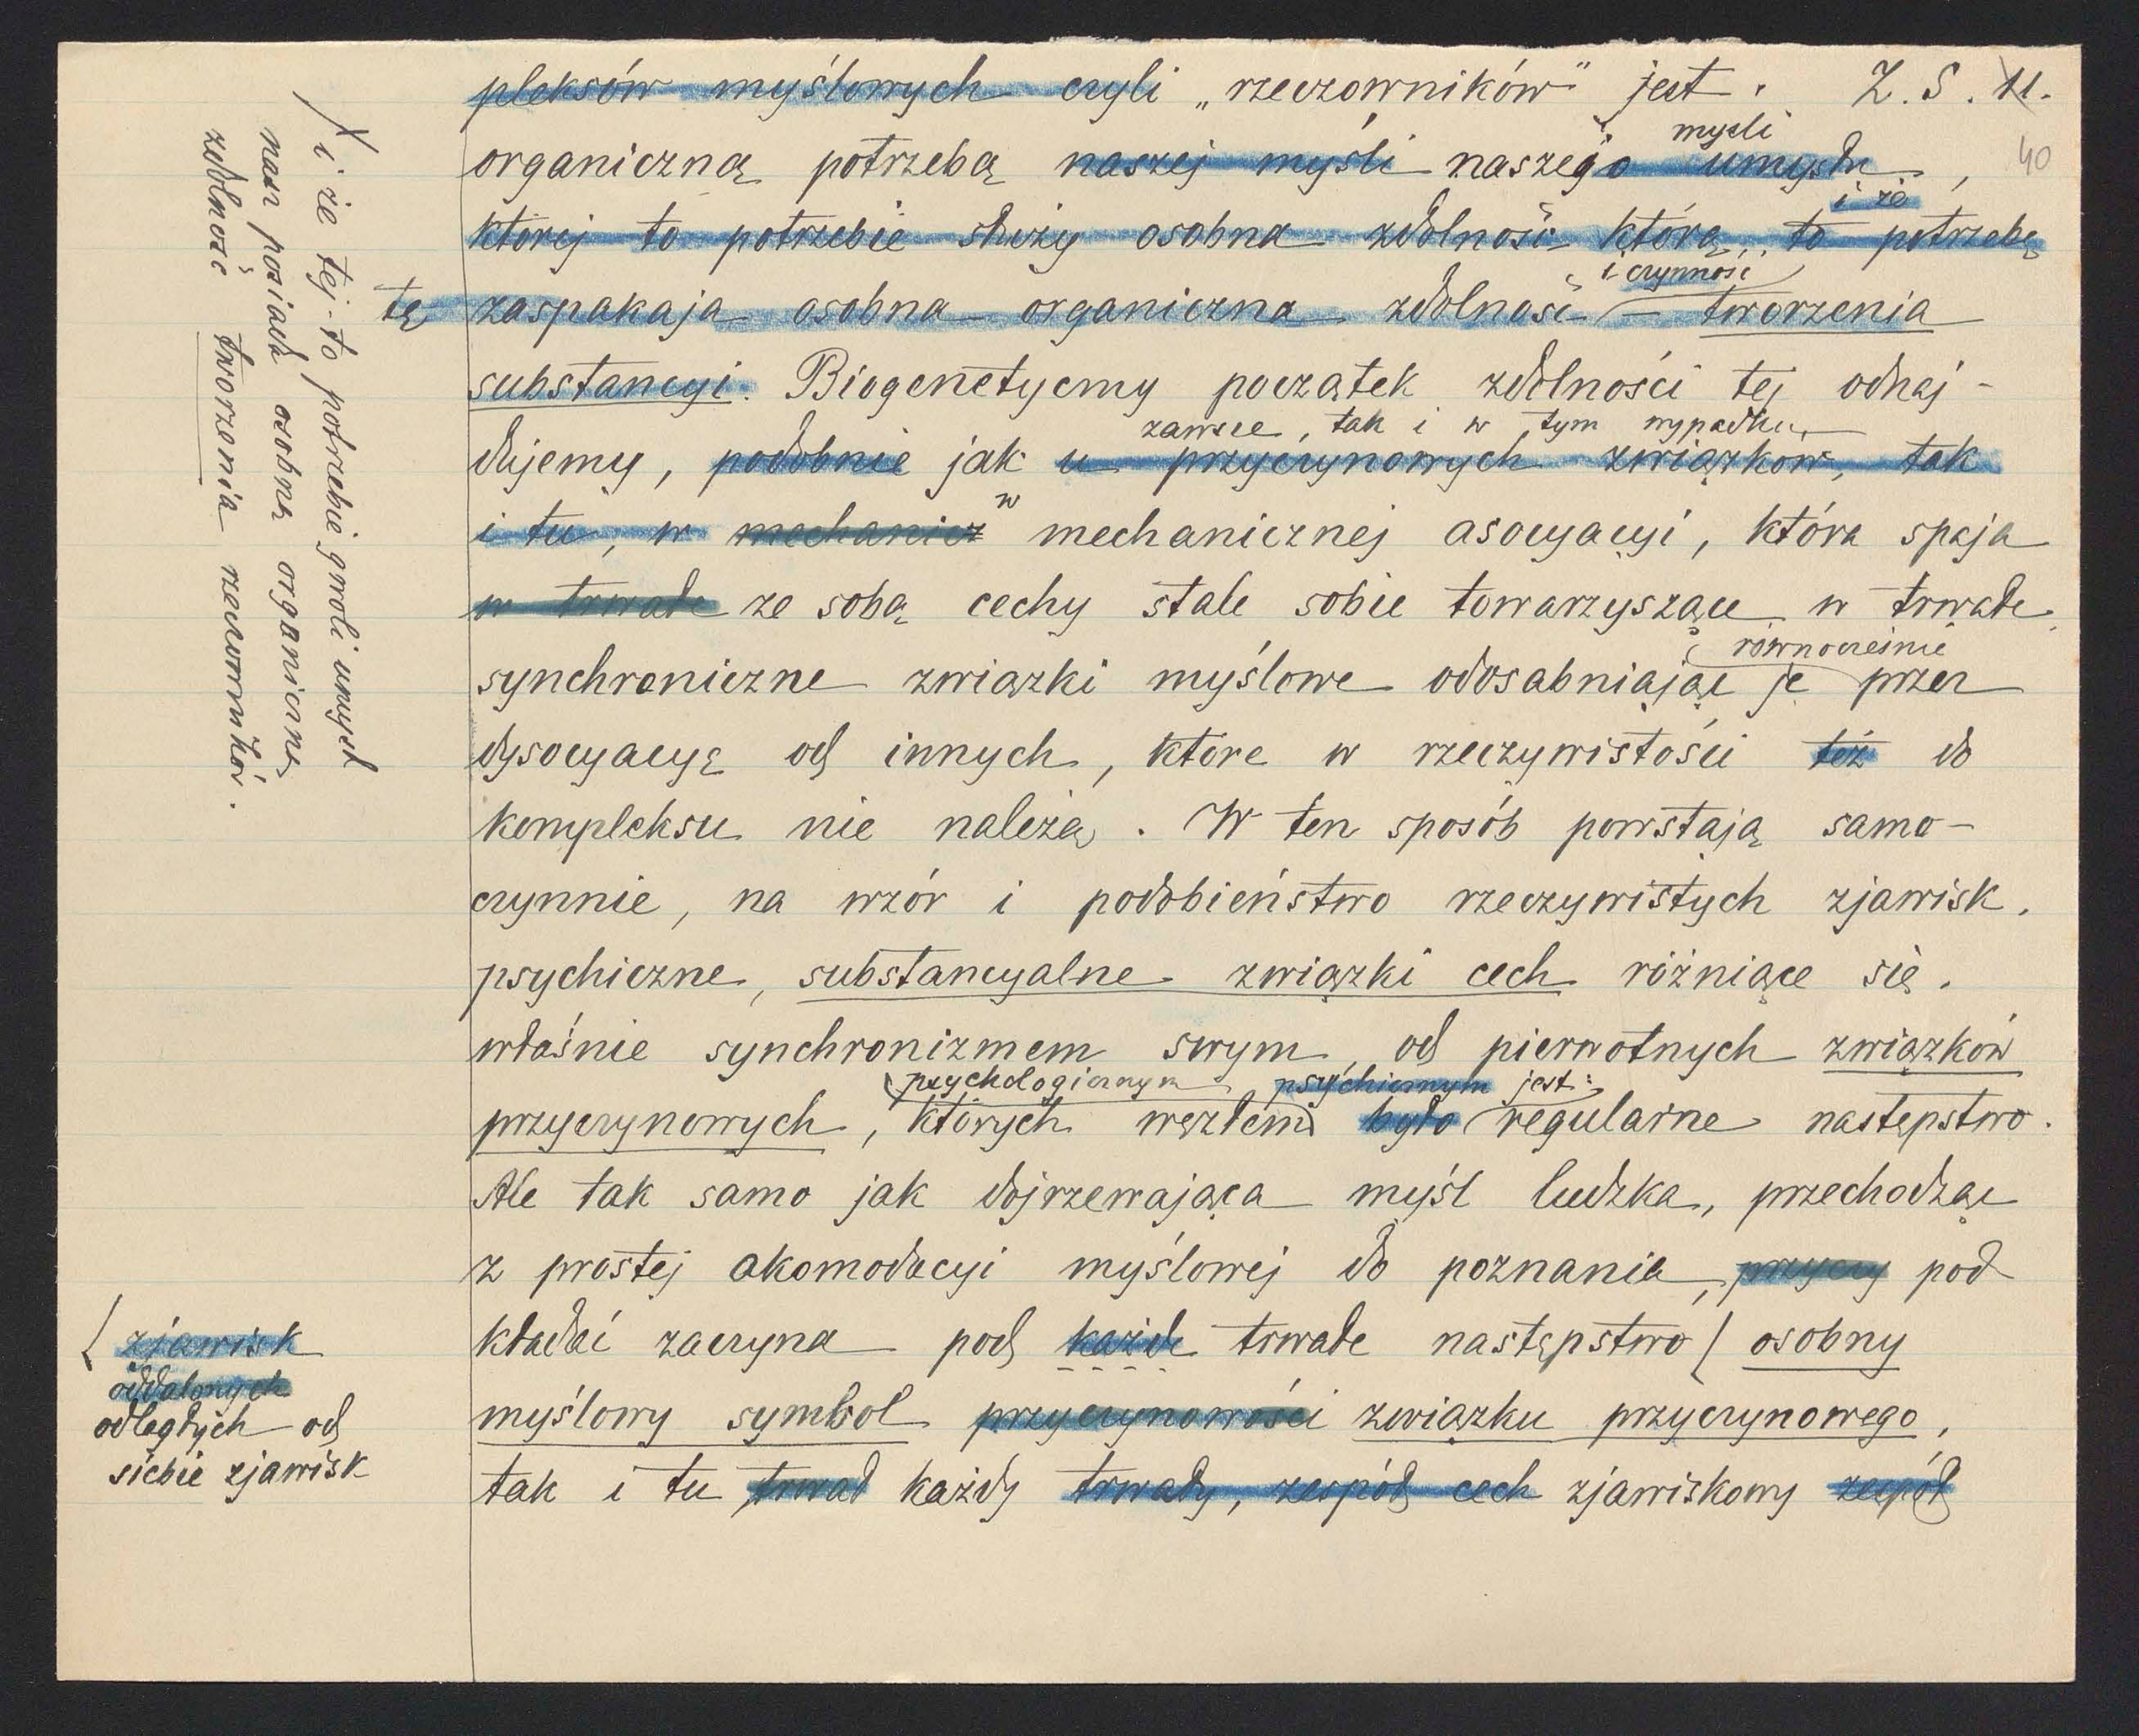 pleksów myślowych czyli „rzeczowników” jest. Z. S. 11.
myśli
organiczną potrzebą naszej myśli naszego umysłu, 40
i że
której to potrzebie służy osobna zdolność którą, to potrzebę
i czynność
tę zaspakaja osobna organiczna zdolność – tworzenia
substancyi. Biogenetyczny początek zdolności tej odnaj-
zawsze, tak i w tym wypadku,
dujemy, podobnie jak u przyczynowych związków, tak
w
i tu, w mechanicz mechanicznej asocyacyi, która spaja
w trwałe ze sobą cechy stale sobie towarzyszące w trwałe
równocześnie
synchroniczne związki myślowe odosabniając je przez
dysocyacyę od innych, które w rzeczywistości też do
kompleksu nie należą. W ten sposób powstają samo-
czynnie, na wzór i podobieństwo rzeczywistych zjawisk.
psychiczne, substancyalne związki cech różniące się.
właśnie synchronizmem swym, od pierwotnych związków
psychologicznym psychicznym jest:
przyczynowych, których węzłem było regularne następstwo.
Ale tak samo jak dojrzewająca myśl ludzka, przechodząc
z prostej akomodacyi myślowej do poznania, przyczy pod
kładać zaczyna pod każde trwałe następstwo / osobny
myślowy symbol przyczynowości związku przyczynowego,
tak i tu trwał każdy trwały, zespół cech zjawiskowy zespół
/ i że tej-to potrzebie gwoli umysł
nasz posiadł osobną organiczną
zdolność tworzenia rzeczowników.
/ zjawisk
oddalonych
odległych od
siebie zjawisk